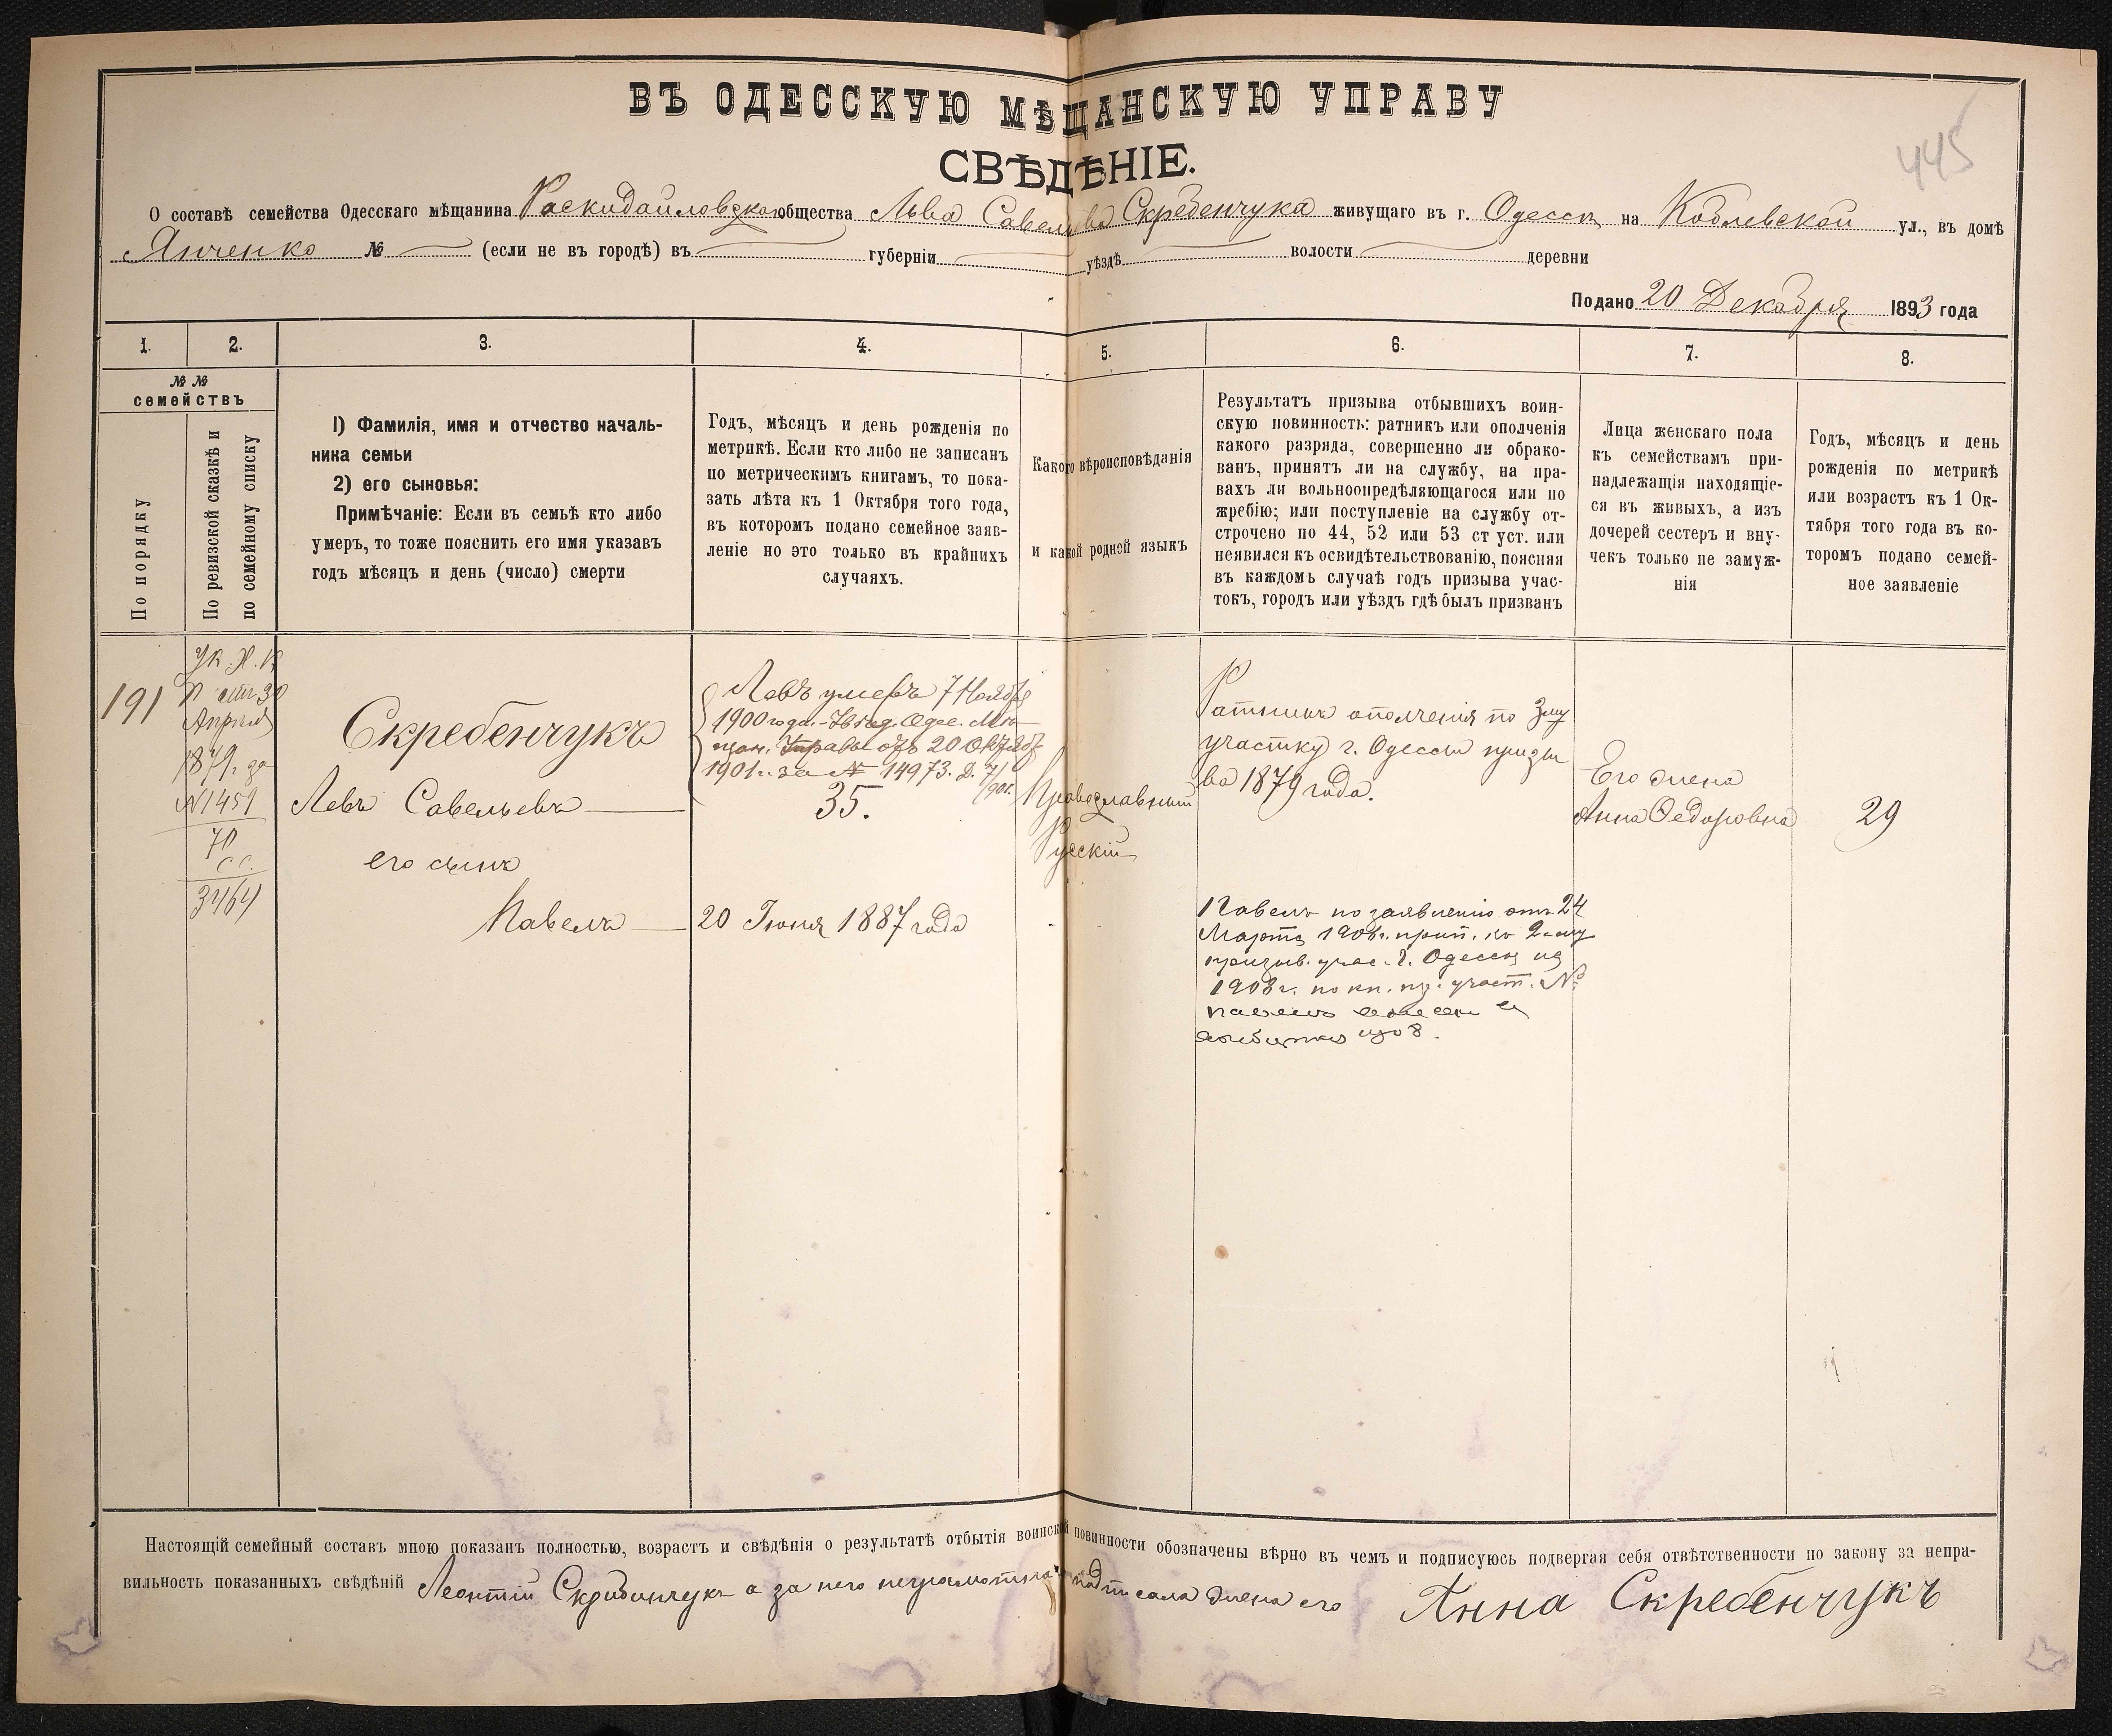 ВЪ ОДЕССКУЮ МѢЩАНСКУЮ УПРАВУ
СВѢДѢНІЕ.
445
О составѣ семейства Одесскаго мѣщанина Раскидайловскаго общества Льва Савельева Скребенчука живущаго въ г. Одессѣ на Коблевской ул., въ домѣ
Янченко № (если не въ городѣ) въ губерніи уѣздѣ волости деревни
Подано 20 Декабря 1893 года
1. 2. 3. 4. 5. 6. 7. 8.
№ №
семействъ
По порядку
По ревизской сказкѣ и
по семейному списку
1) Фамилія, имя и отчество началь-
ника семьи
2) его сыновья:
Примѣчаніе: Если въ семьѣ кто либо
умеръ, то тоже пояснить его имя указавъ
годъ мѣсяцъ и день (число) смерти
Годъ, мѣсяцъ и день рожденія по
метрикѣ. Если кто либо не записанъ
по метрическимъ книгамъ, то пока-
зать лѣта къ 1 Октября того года,
въ которомъ подано семейное заяв-
леніе но это только въ крайнихъ
случаяхъ.
Какого вѣроисповѣданія
и какой родной языкъ
Результатъ призыва отбывшихъ воин-
скую повинность: ратникъ или ополченія
какого разряда, совершенно ли обрако-
ванъ, принятъ ли на службу, на пра-
вахъ ли вольноопредѣляющагося или по
жребію; или поступленіе на службу от-
строчено по 44, 52 или 53 ст уст. или
неявился къ освидѣтельствованію, поясняя
въ каждомъ случаѣ годъ призыва учас-
токъ, городъ или уѣздъ гдѣ былъ призванъ
Лица женскаго пола
къ семействамъ при-
надлежащія находящіе-
ся въ живыхъ, а изъ
дочерей сестеръ и вну-
чекъ только не замуж-
нія
Годъ, мѣсяцъ и день
рожденія по метрикѣ
или возрастъ къ 1 Ок-
тября того года въ ко-
торомъ подано семей-
ное заявленіе
191
Ук. Х. К
П отъ 30
Апрѣля
1879 г. за
№ 1451
3464
Скребенчукъ
Левъ Савельевъ
его сынъ
Павелъ
Левъ умеръ 7 Ноября
1900 года. Увѣд. Одес. Мѣ-
щан. Управы отъ 20 Октября
1901 г. за № 14973. Д.
35.
20 Іюня 1887 года
Православный
Русскій
Ратникъ ополченія по 3му
участку г. Одессы призы
ва 1879 года.
Павелъ по заявленію отъ 24
Марта 1908 г. прип. къ 2-му
призыв. учас. г. Одессы на
1908 г. по кн. пр. участ. №
Его жена
Анна Федоровна
29
Настоящій семейный составъ мною показанъ полностью, возрастъ и свѣдѣнія о результатѣ отбытія воинской повинности обозначены вѣрно въ чемъ и подписуюсь подвергая себя отвѣтственности по закону за непра-
вильность показанныхъ свѣдѣній Леонтій Скрибинчукъ а за него неграмотнаго подписала жена его Анна Скребенчукъ